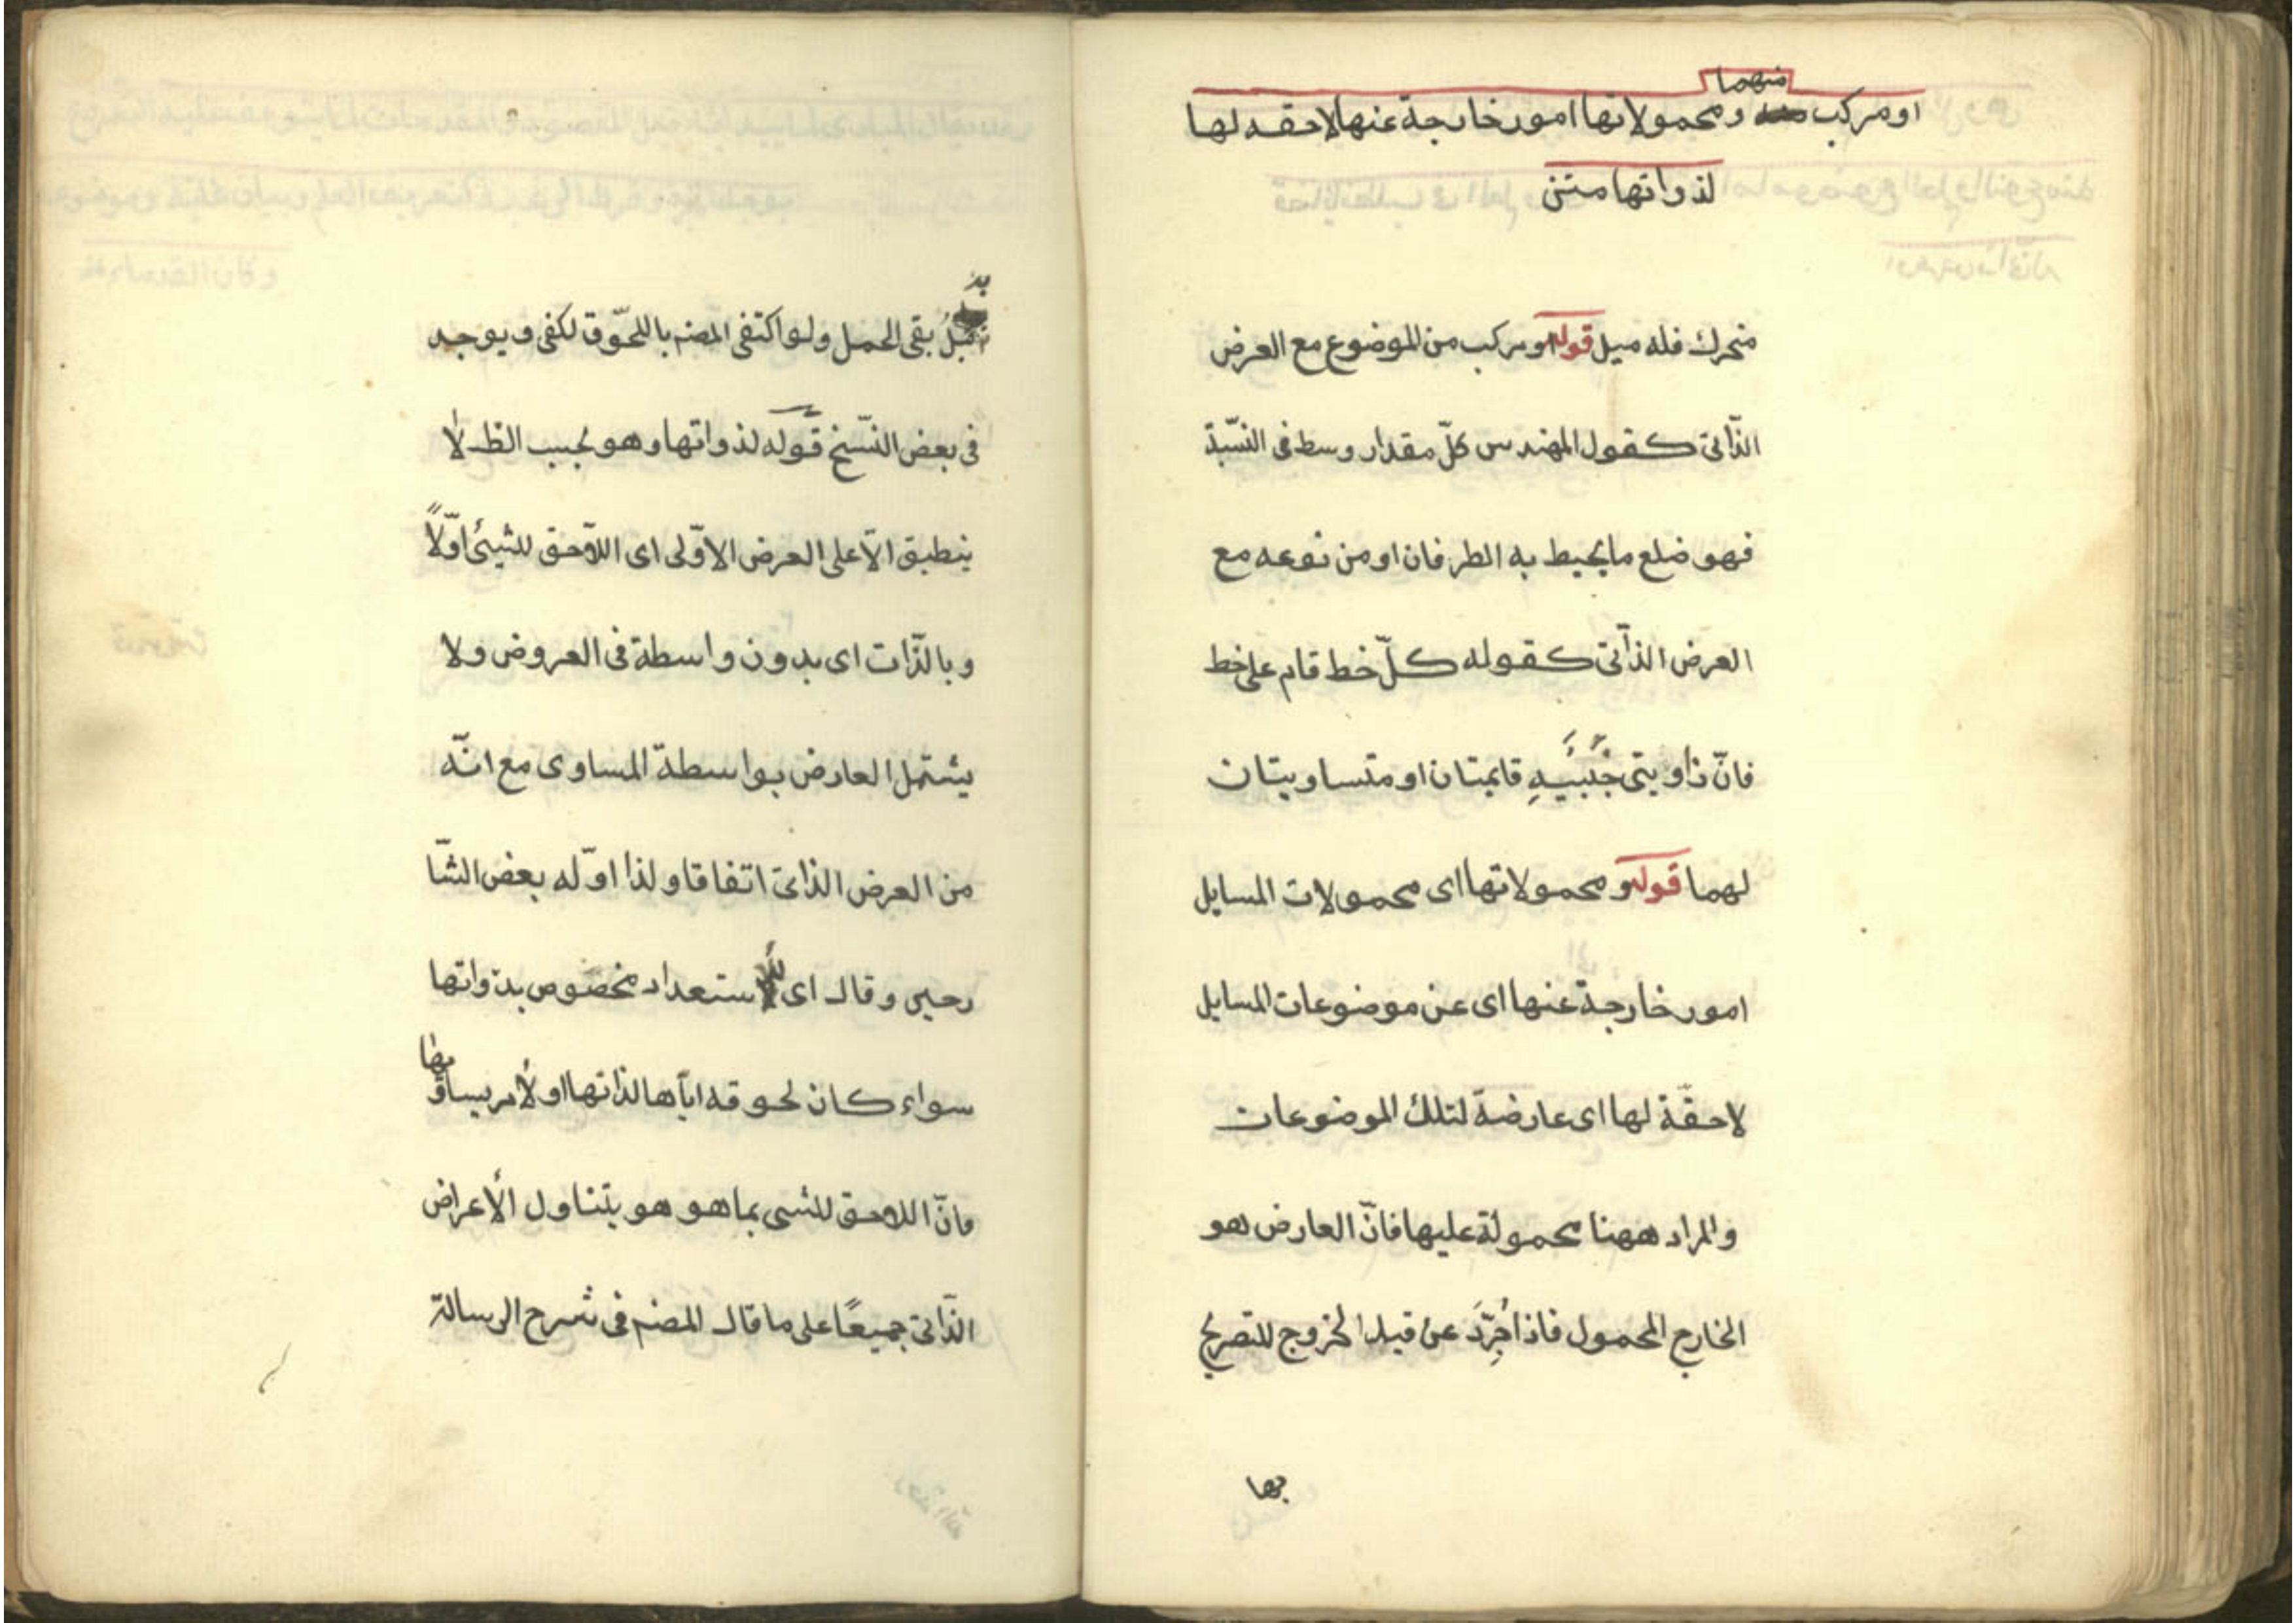 منهما
او مركب ومحمولاتها امور خارجة عنها لاحقه لها
لذواتها متن
متحرك فله ميل قوله او مركب من الموضوع مع العرض
الذّاتى كقول المهندس كلّ مقدار وسط فى النّسبة
فهو ضلع ما يحيط به الطرفان او من نوعه مع
العرض الذّاتى كقوله كلّ خط قام على خط
فانّ زاويتى جَنْبَيْهِ قايمتان او متساويتان
لهما قوله ومحمولاتها اى محمولات المسايل
امور خارجة عنها اى عن موضوعات المسايل
لاحقة لها اى عارضة لتلك الموضوعات
والمراد ههنا محمولة عليها فانّ العارض هو
الخارج المحمول فاذا جُرِّدَ عن قيد الخروج للتصريح
بها
به
قبلُ بقى الحمل ولو اكتفى المصنم باللحّوق لكفى ويوجد
فى بعض النّسخ قوله لذواتها وهو بحسب الظ لا
ينطبق الّا على العرض الاوّلى اى اللّاحق للشيئ اوّلاً
وبالذّات اى بدون واسطة فى العروض ولا
يشتمل العارض بواسطة المساوى مع انّه
من العرض الذاتى اتفاقا ولذا اوّله بعض الشّا
رحين وقال اى لاستعداد مخصوص بذواتها
سواء كان لحوقه ايّاها لذاتها او لأمر يساو
يها
فانّ اللاحق للشى بما هو هو يتناول الأعراض
الذّاتى جميعًا على ما قال المصنم فى شرح الرسالة